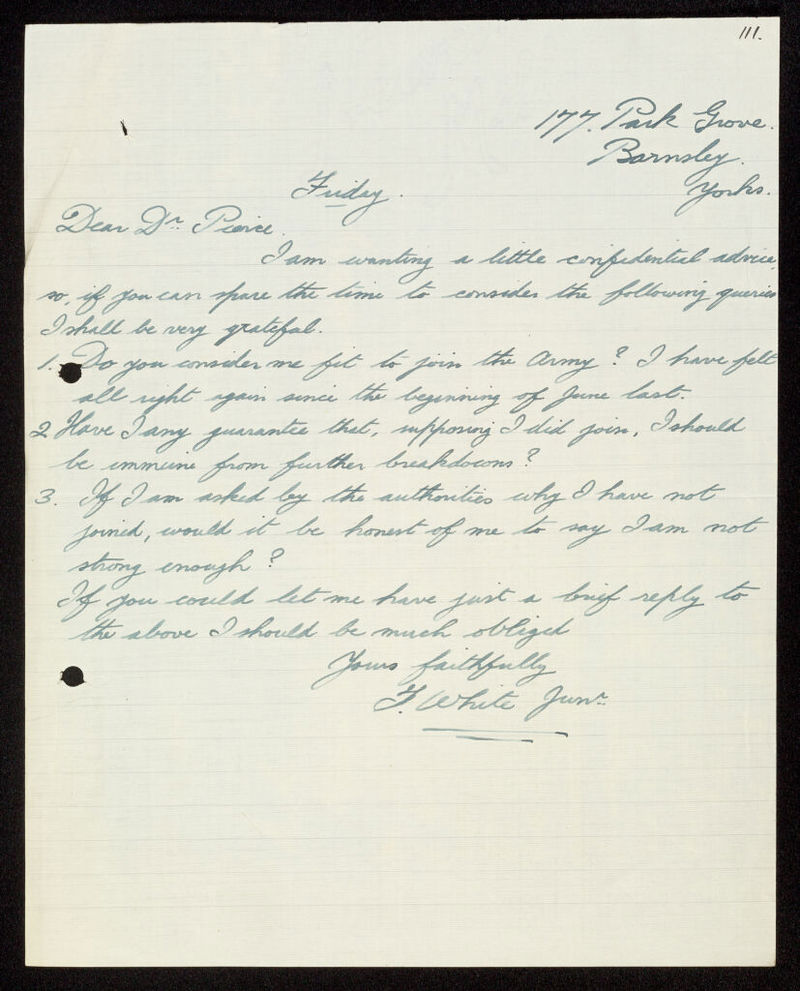 111.
177. Park Grove.
Barnsley.
Yorks.
Friday.
Dear Dr. Pierce.
I am wanting a little confidential advice,
so, if you can spare the time to consider the following queries
I shall be very grateful.
1. Do you consider me fit to join the Army? I have felt
all right again since the beginning of June last.
2. Have I any guarantee that, supposing I did join, I should
be immune from further breakdowns?
3. If I am asked by the authorities why I have not
joined, would it be honest of me to say I am not
strong enough?
If you could let me have just a brief reply to
the above I should be much obliged
Yours faithfully
F. White Junr.